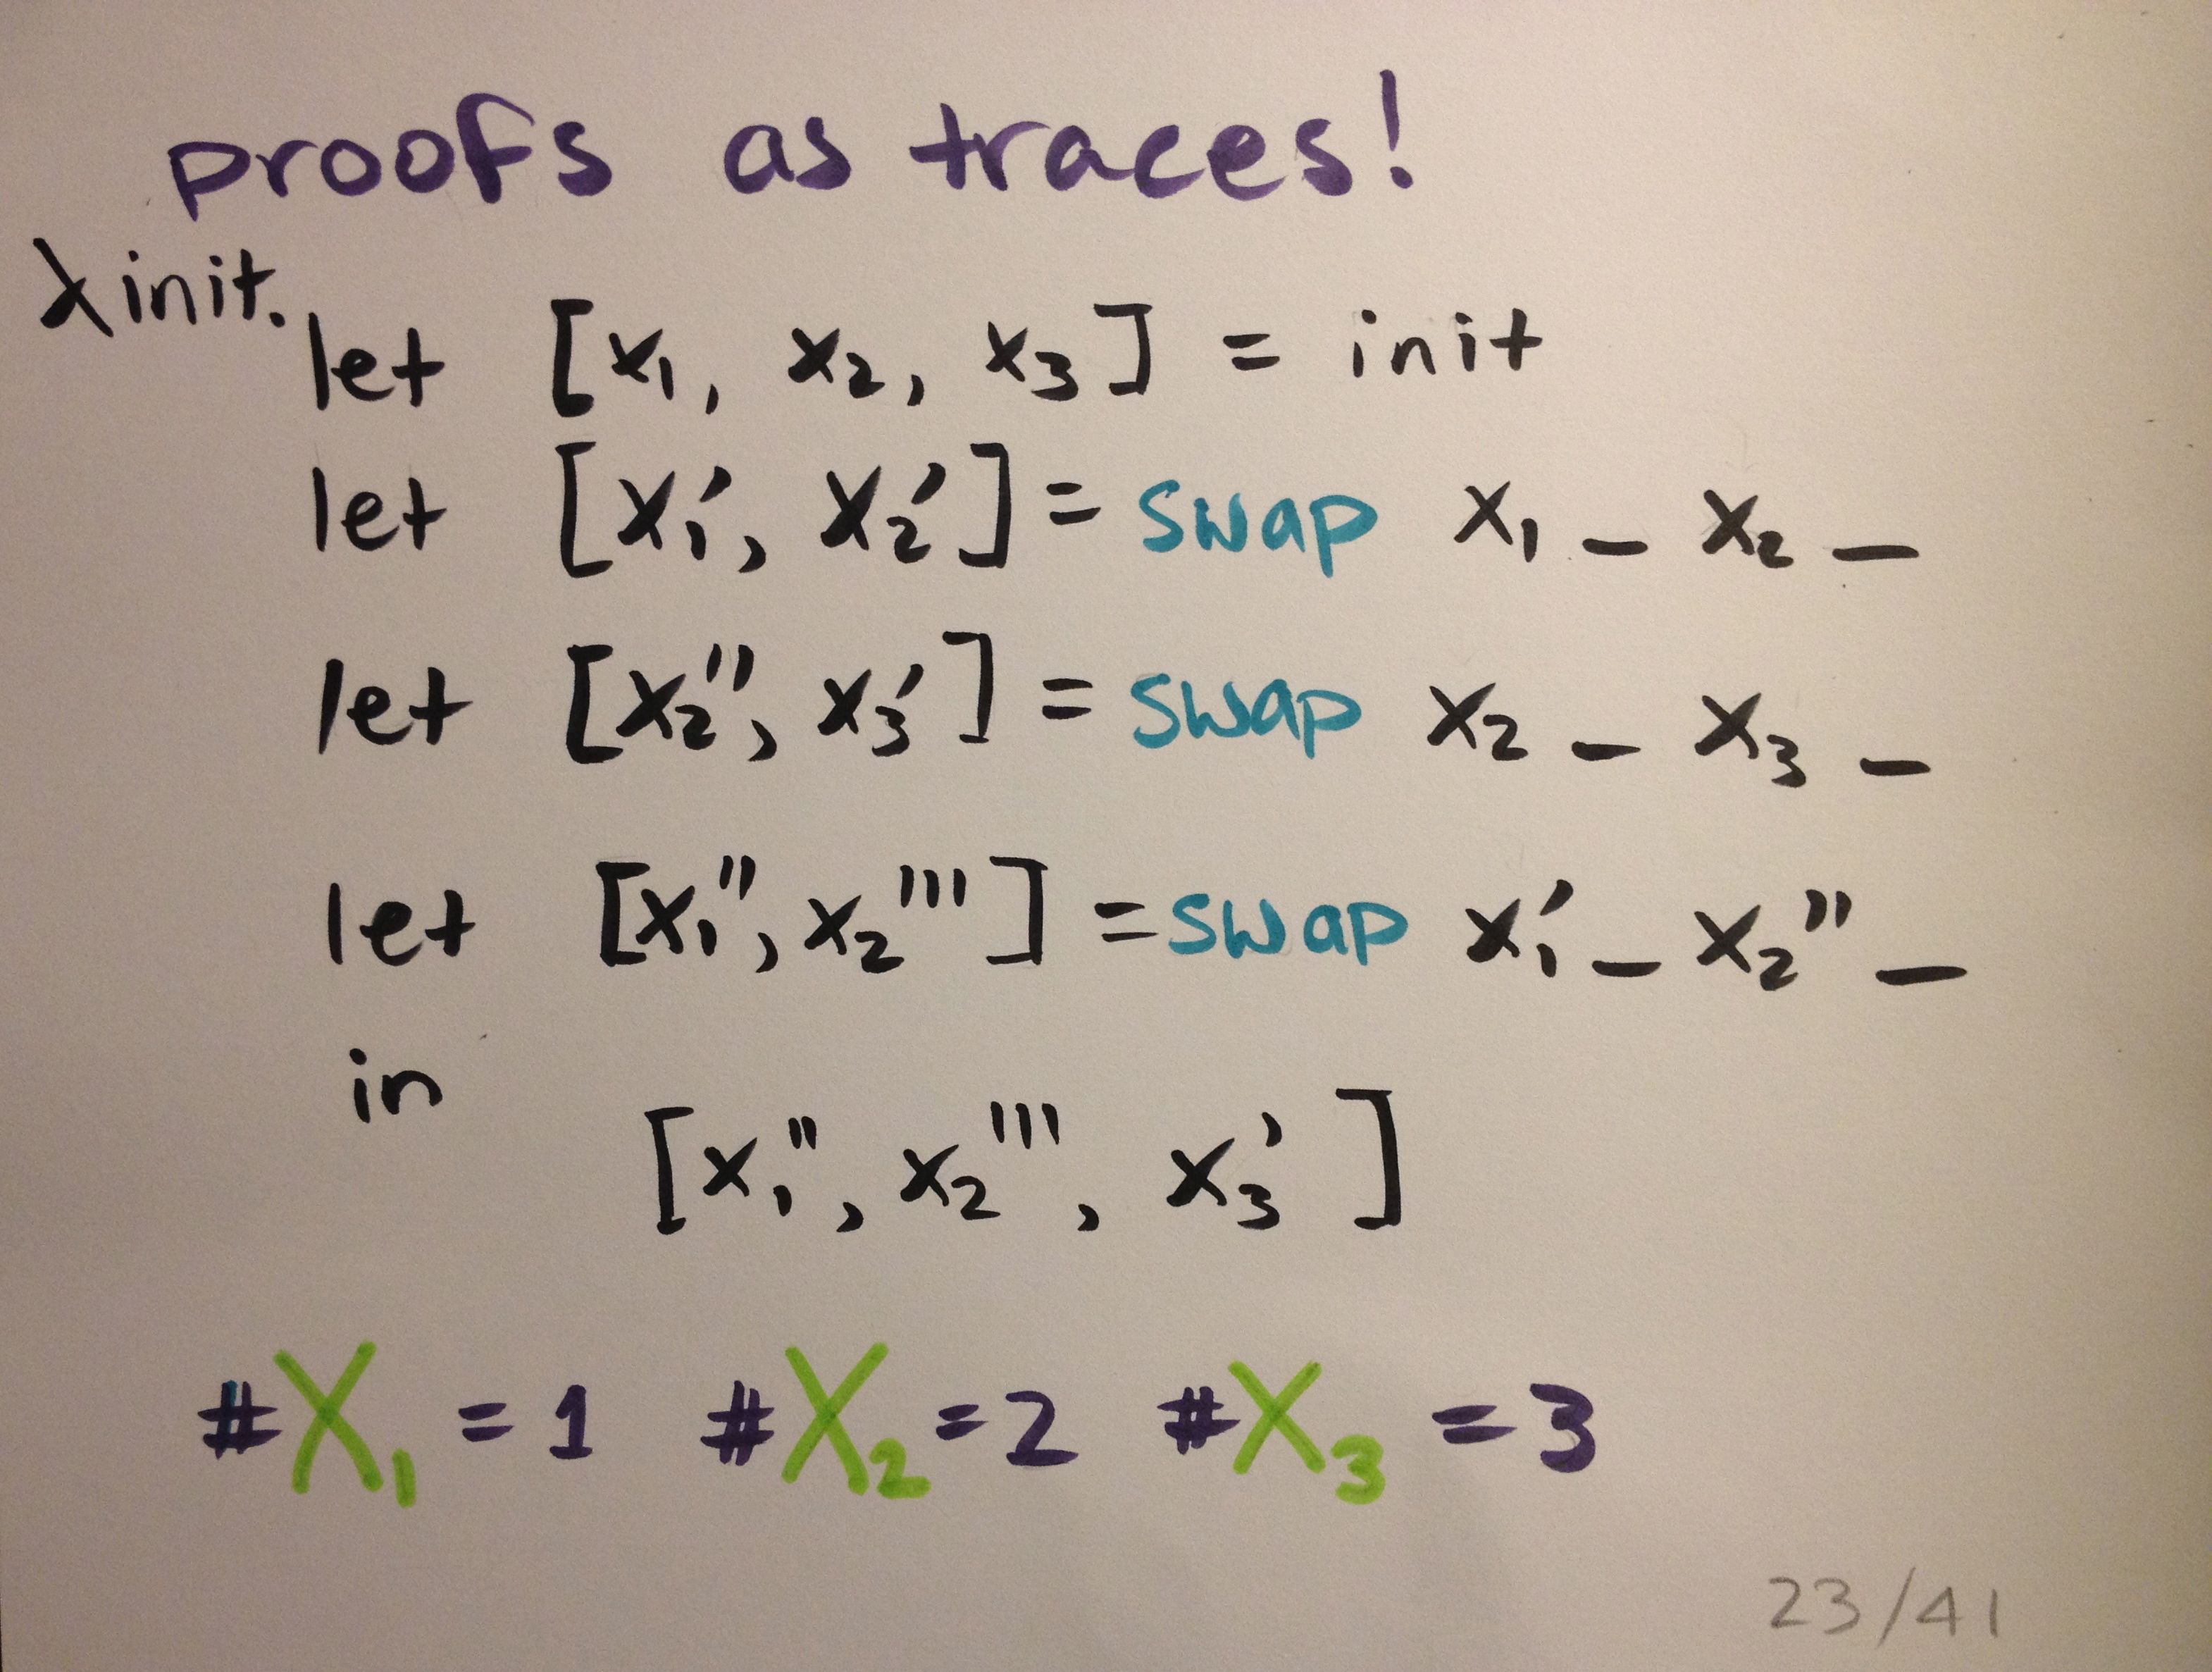 proofs as traces!
λ init.
let [x₁, x₂, x₃] = init
let [x₁', x₂'] = swap x₁ _ x₂ _
let [x₂'', x₃'] = swap x₂ _ x₃ _
let [x₁'', x₂'''] = swap x₁' _ x₂'' _
in
[x₁'', x₂''', x₃']
#X₁ = 1 #X₂ = 2 #X₃ = 3
23/41